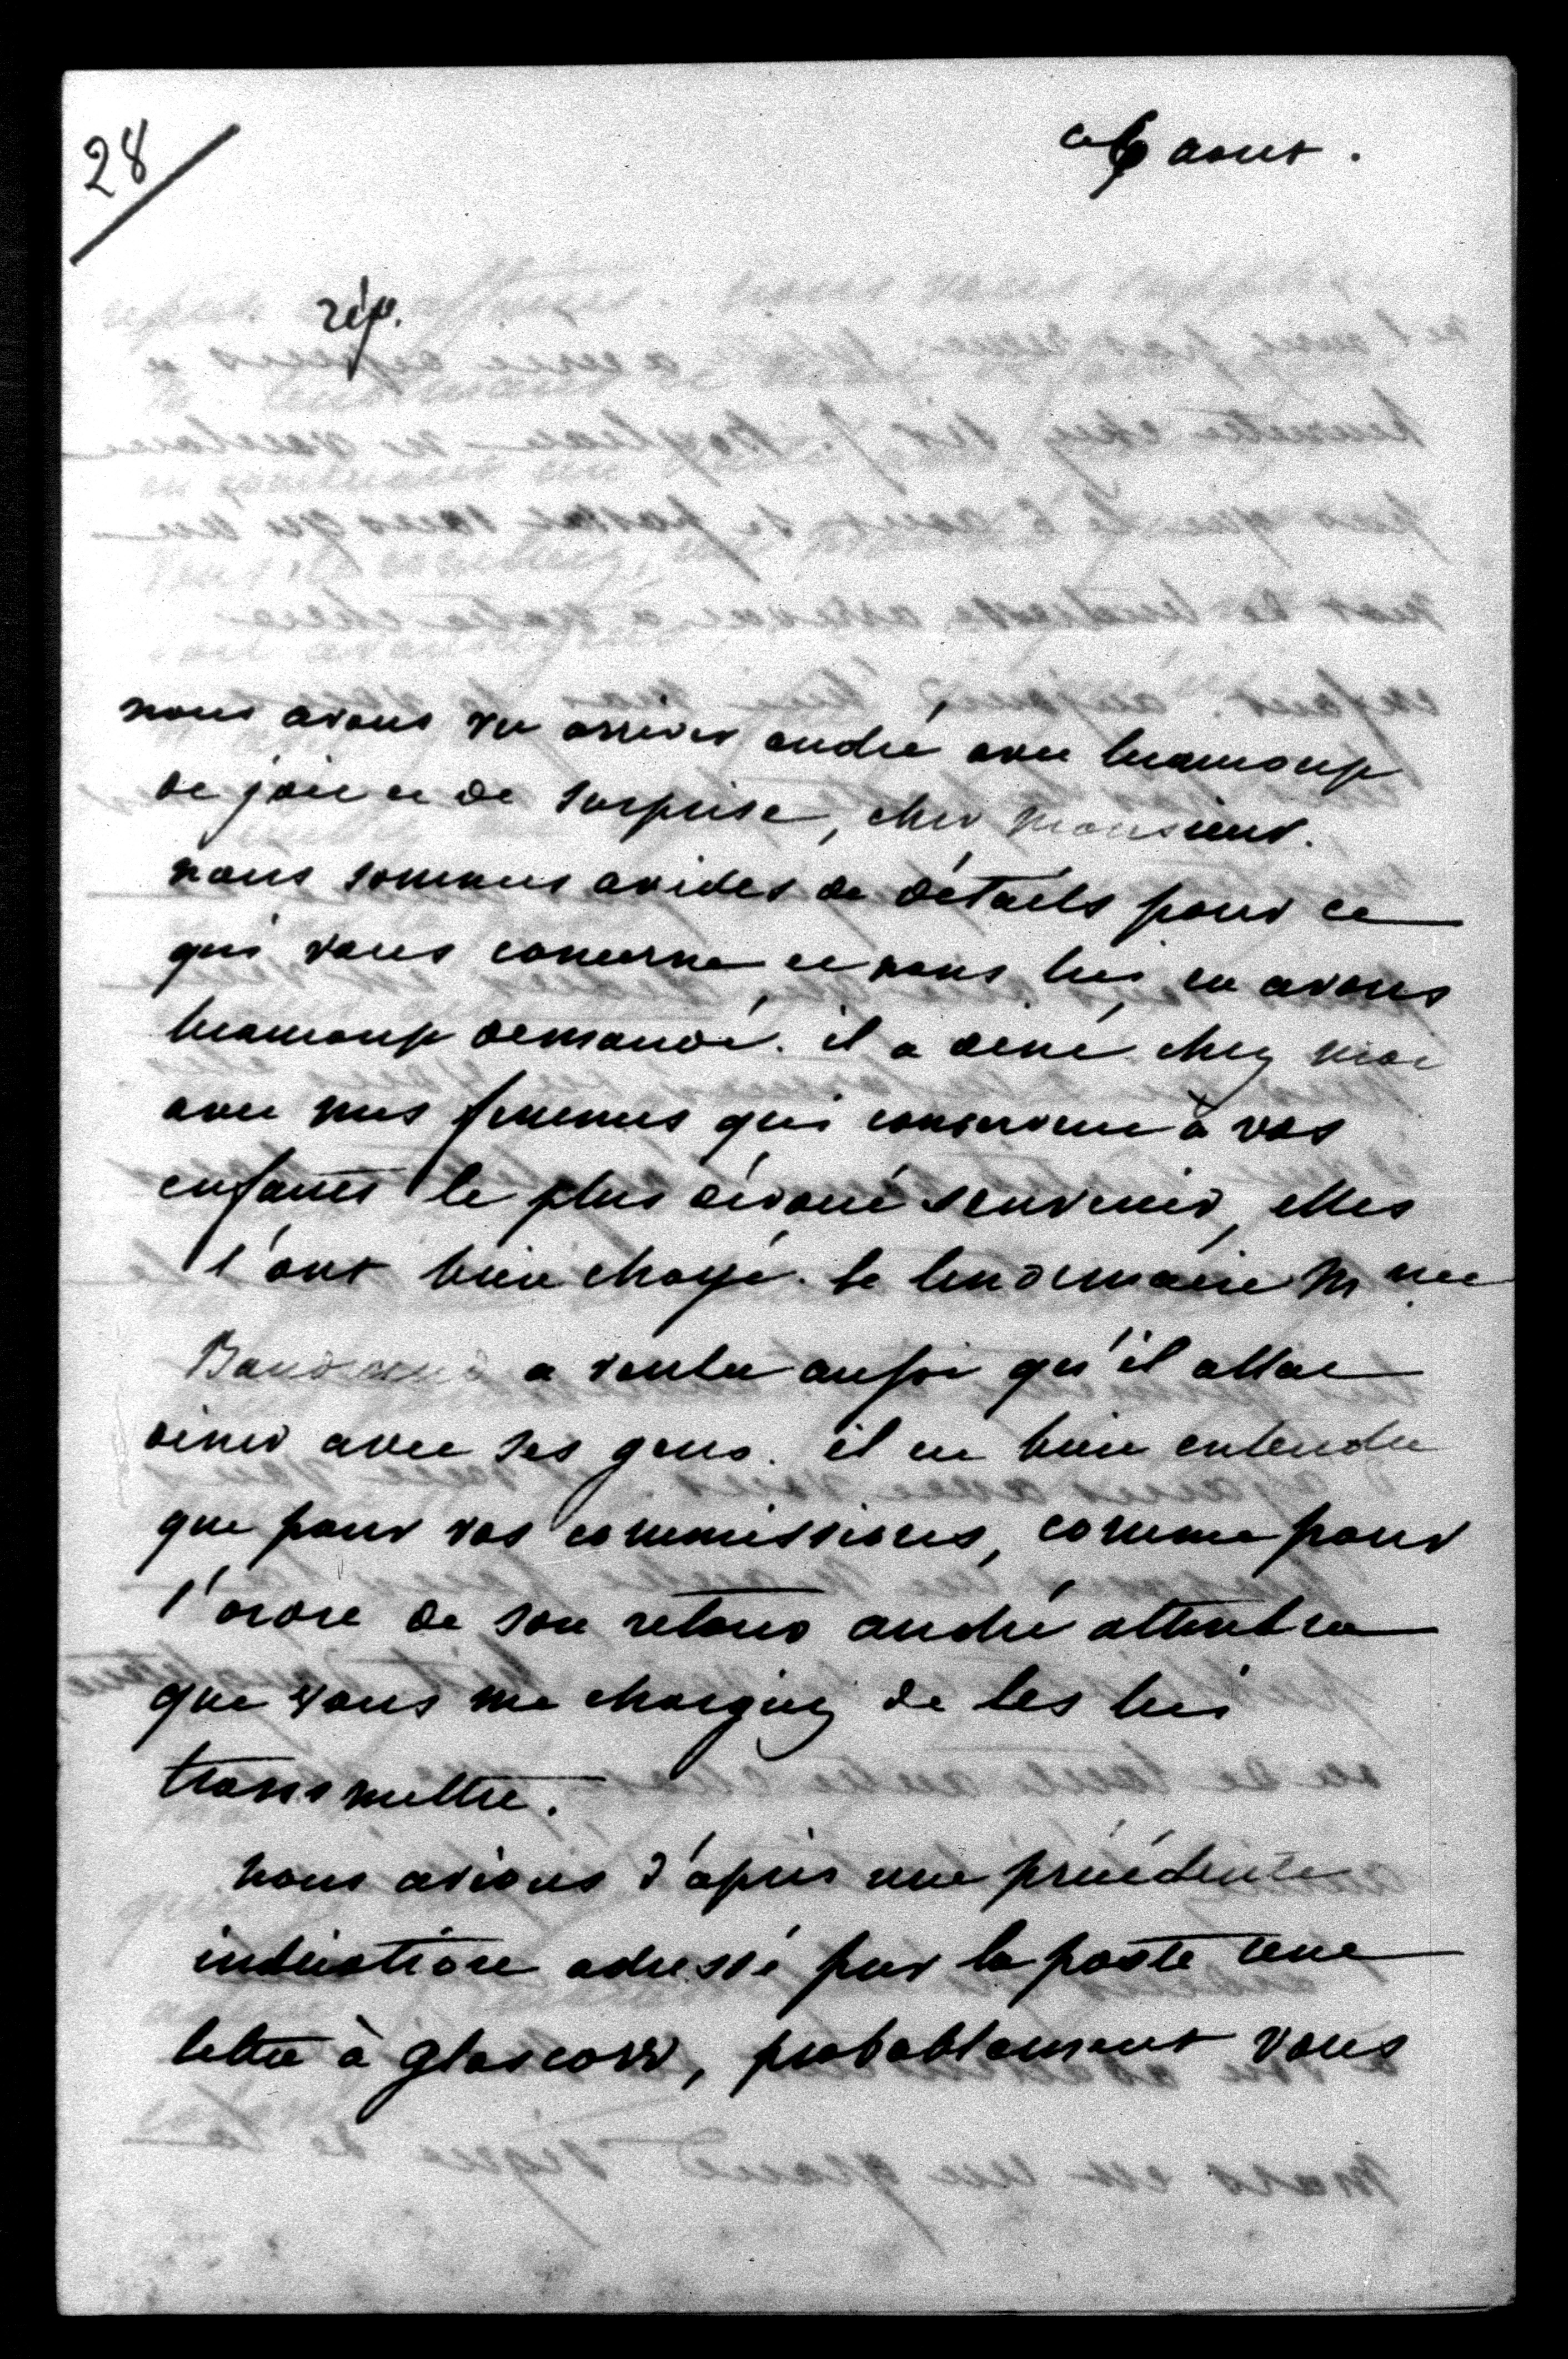 28
ce 6 aout.
rép.
nous avons vu arriver andré avec beaucoup
de joie et de surprise, cher monsieur.
nous sommes avides de détails pour ce
qui vous concerne et nous lui en avons
beaucoup demandé. il a diné chez moi
avec mes femmes qui conservent à vos
enfants le plus dévoué souvenir, elles
l'ont bien choyé. le lendemain Mme
a voulu aussi qu'il allat
diner avec ses gens. il est bien entendu
que pour vos commissions, comme pour
l'ordre de son retour andré attendra
que vous me chargiez de les lui
transmettre.
nous avions d'après une précédente
indication adressé par la poste une
lettre à glascow, probablement vous